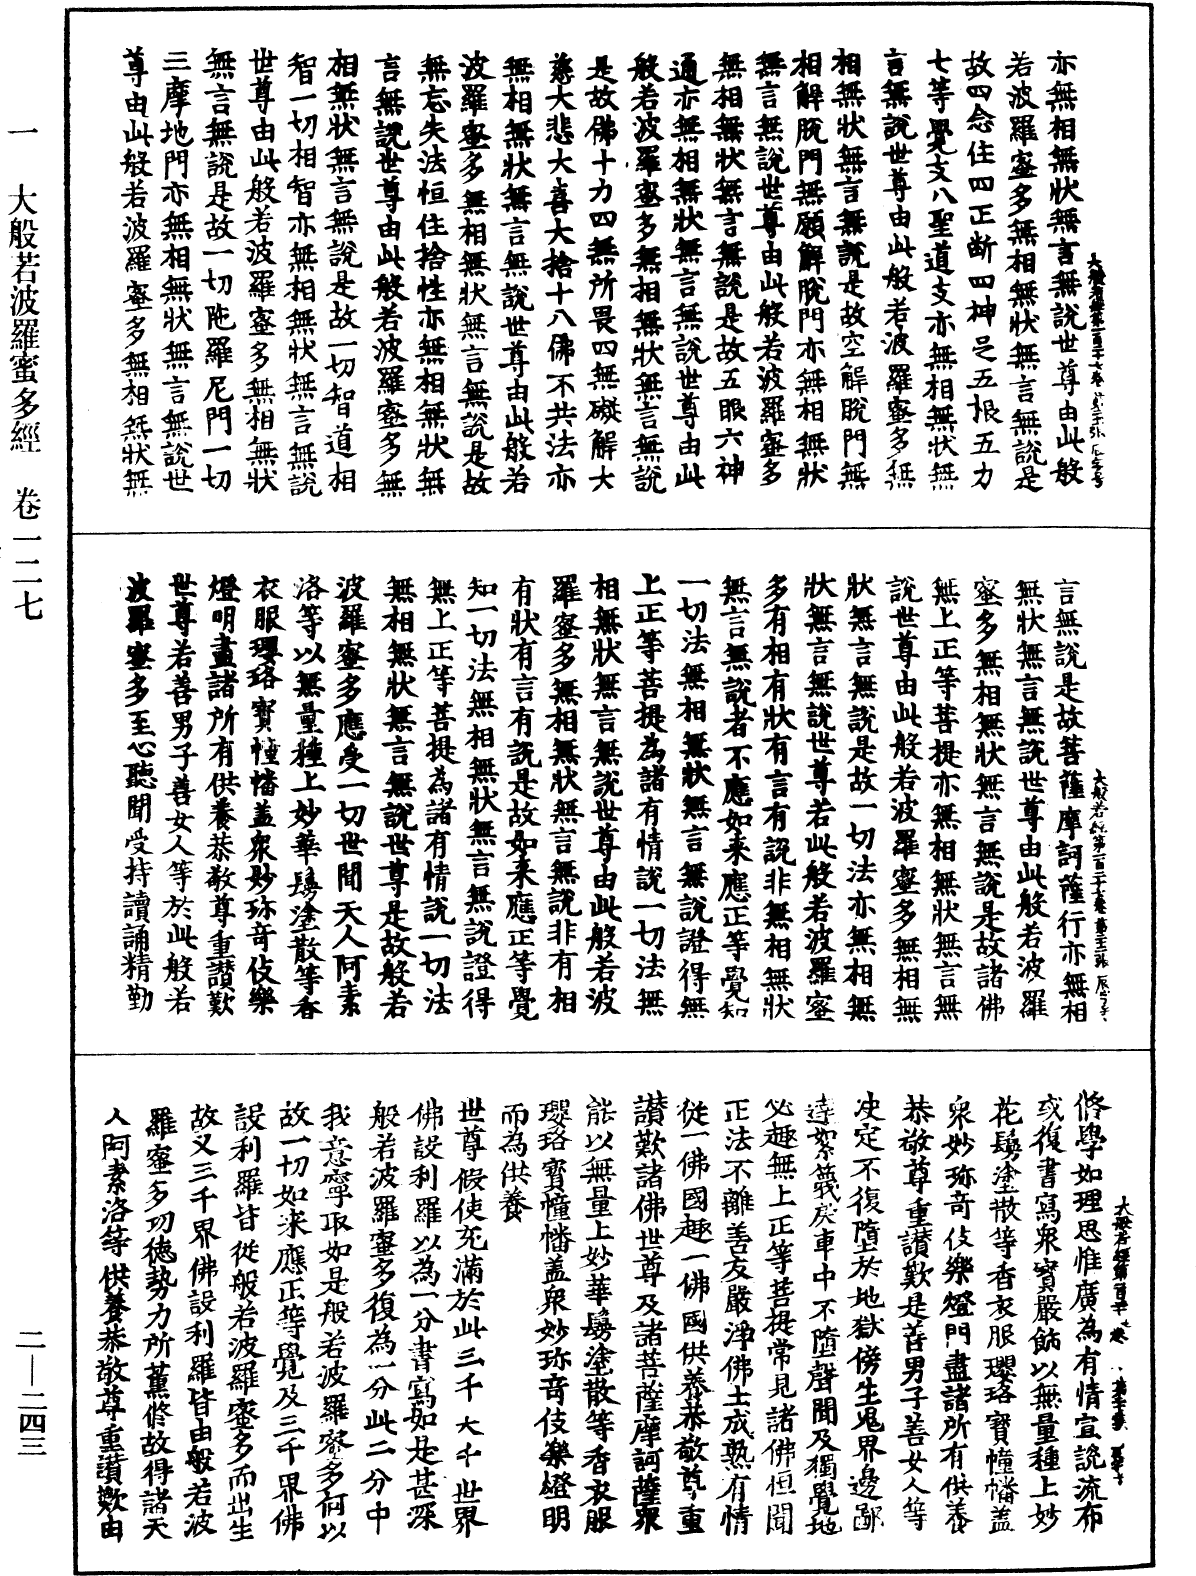 一 大般若波羅蜜多經 卷一二七
二—二四三
亦無相無狀無言無說世尊由此般
若波羅蜜多無相無狀無言無說是
故四念住四正斷四神足五根五力
七等覺支八聖道支亦無相無狀無
言無說世尊由此般若波羅蜜多無
相無狀無言無說是故空解脫門無
相解脫門無願解脫門亦無相無狀
無言無說世尊由此般若波羅蜜多
無相無狀無言無說是故五眼六神
通亦無相無狀無言無說世尊由此
般若波羅蜜多無相無狀無言無說
是故佛十力四無所畏四無礙解大
慈大悲大喜大捨十八佛不共法亦
無相無狀無言無說世尊由此般若
波羅蜜多無相無狀無言無說是故
無忘失法恒住捨性亦無相無狀無
言無說世尊由此般若波羅蜜多無
相無狀無言無說是故一切智道相
智一切相智亦無相無狀無言無說
世尊由此般若波羅蜜多無相無狀
無言無說是故一切陁羅尼門一切
三摩地門亦無相無狀無言無說世
尊由此般若波羅蜜多無相無狀無
言無說是故菩薩摩訶薩行亦無相
無狀無言無說世尊由此般若波羅
蜜多無相無狀無言無說是故諸佛
無上正等菩提亦無相無狀無言無
說世尊由此般若波羅蜜多無相無
狀無言無說是故一切法亦無相無
狀無言無說世尊若此般若波羅蜜
多有相有狀有言有說非無相無狀
無言無說者不應如來應正等覺知
一切法無相無狀無言無說證得無
上正等菩提為諸有情說一切法無
相無狀無言無說世尊由此般若波
羅蜜多無相無狀無言無說非有相
有狀有言有說是故如來應正等覺
知一切法無相無狀無言無說證得
無上正等菩提為諸有情說一切法
無相無狀無言無說世尊是故般若
波羅蜜多應受一切世間天人阿素
洛等以無量種上妙華鬘塗散等香
衣服瓔珞寶幢幡蓋眾妙珎奇伎樂
燈明盡諸所有供養恭敬尊重讚歎
世尊若善男子善女人等於此般若
波羅蜜多至心聽聞受持讀誦精勤
脩學如理思惟廣為有情宣說流布
或復書寫眾寶嚴飾以無量種上妙
花鬘塗散等香衣服瓔珞寶幢幡蓋
眾妙珎奇伎樂燈明盡諸所有供養
恭敬尊重讚歎是善男子善女人等
決定不復墮於地獄傍生鬼界邊鄙
達絮篾戾車中不墮聲聞及獨覺地
必趣無上正等菩提常見諸佛恒聞
正法不離善友嚴淨佛土成熟有情
從一佛國趣一佛國供養恭敬尊重
讚歎諸佛世尊及諸菩薩摩訶薩眾
能以無量上妙華鬘塗散等香衣服
瓔珞寶幢幡蓋眾妙珎奇伎樂燈明
而為供養
世尊假使充滿於此三千大千世界
佛設利羅以為一分書寫如是甚深
般若波羅蜜多復為一分此二分中
我意寧取如是般若波羅蜜多何以
故一切如來應正等覺及三千界佛
設利羅皆從般若波羅蜜多而出生
故又三千界佛設利羅皆由般若波
羅蜜多功德勢力所薰脩故得諸天
人阿素洛等供養恭敬尊重讚歎由